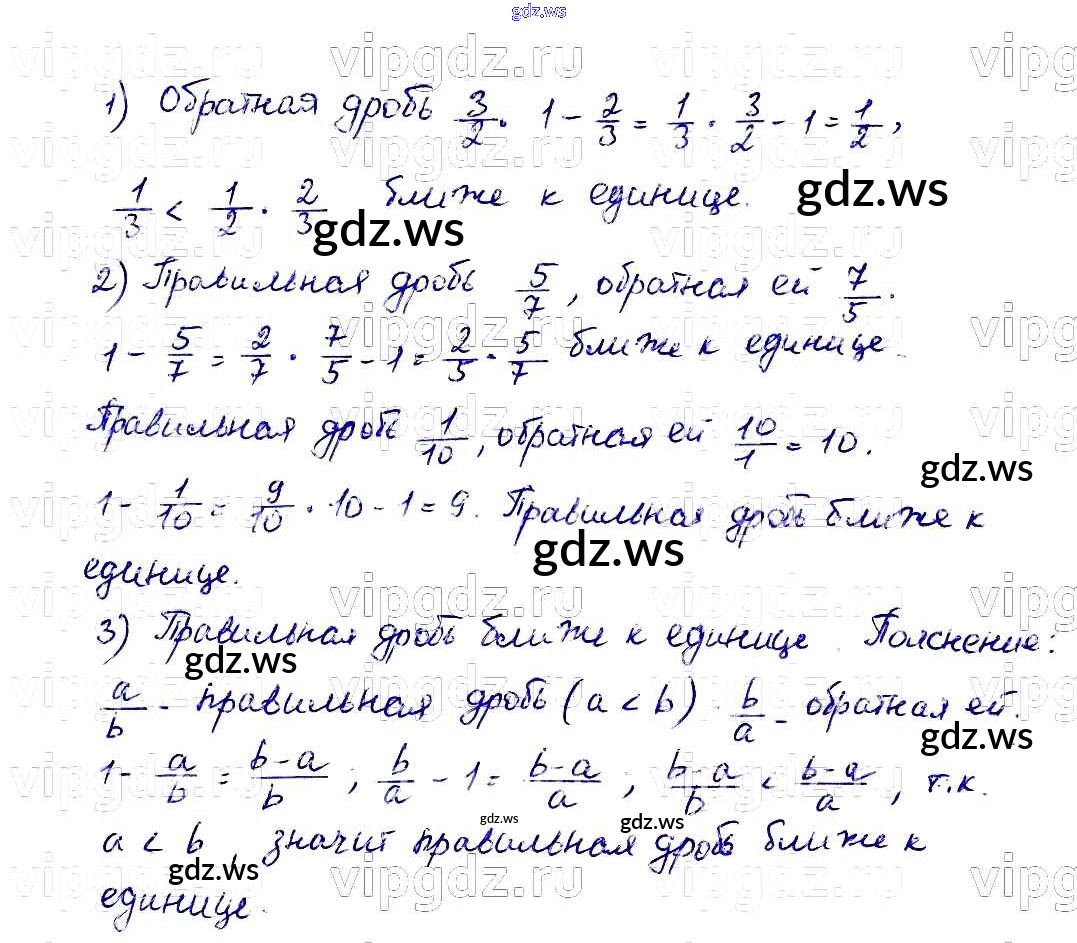 gdz.ws
1) Обратная дробь 3/2. 1 - 2/3 = 1/3. 3/2 - 1 = 1/2,
1/3 < 1/2. 2/3 ближе к единице.
gdz.ws
gdz.ws
2) Правильная дробь 5/7, обратная ей 7/5.
1 - 5/7 = 2/7. 7/5 - 1 = 2/5. 5/7 ближе к единице.
Правильная дробь 1/10, обратная ей 10/1 = 10.
gdz.ws
1 - 1/10 = 9/10. 10 - 1 = 9. Правильная дробь ближе к
gdz.ws
единице.
3) Правильная дробь ближе к единице. Пояснение:
gdz.ws
a/b - правильная дробь (a < b). b/a - обратная ей.
gdz.ws
1 - a/b = b-a/b ; b/a - 1 = b-a/a ; b-a/b < b-a/a , т.к.
gdz.ws
gdz.ws
a < b, значит правильная дробь ближе к
gdz.ws
единице.
vipgdz.ru